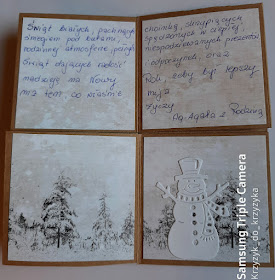 Świąt białych, pachnących
śniegiem pod butami,
rodzinnej atmosfery,
Świąt dających radość
nadzieję na Nowy
niż ten co właśnie
choinką, skrzypiących
spędzonych w ciepłej
niespodziewanych prezentów
odpoczynek, oraz
Rok, żeby był lepszy
mija
życzy
Aga z Rodziną
Samsung Triple Camera
Krzyzyk_do_krzyzyka